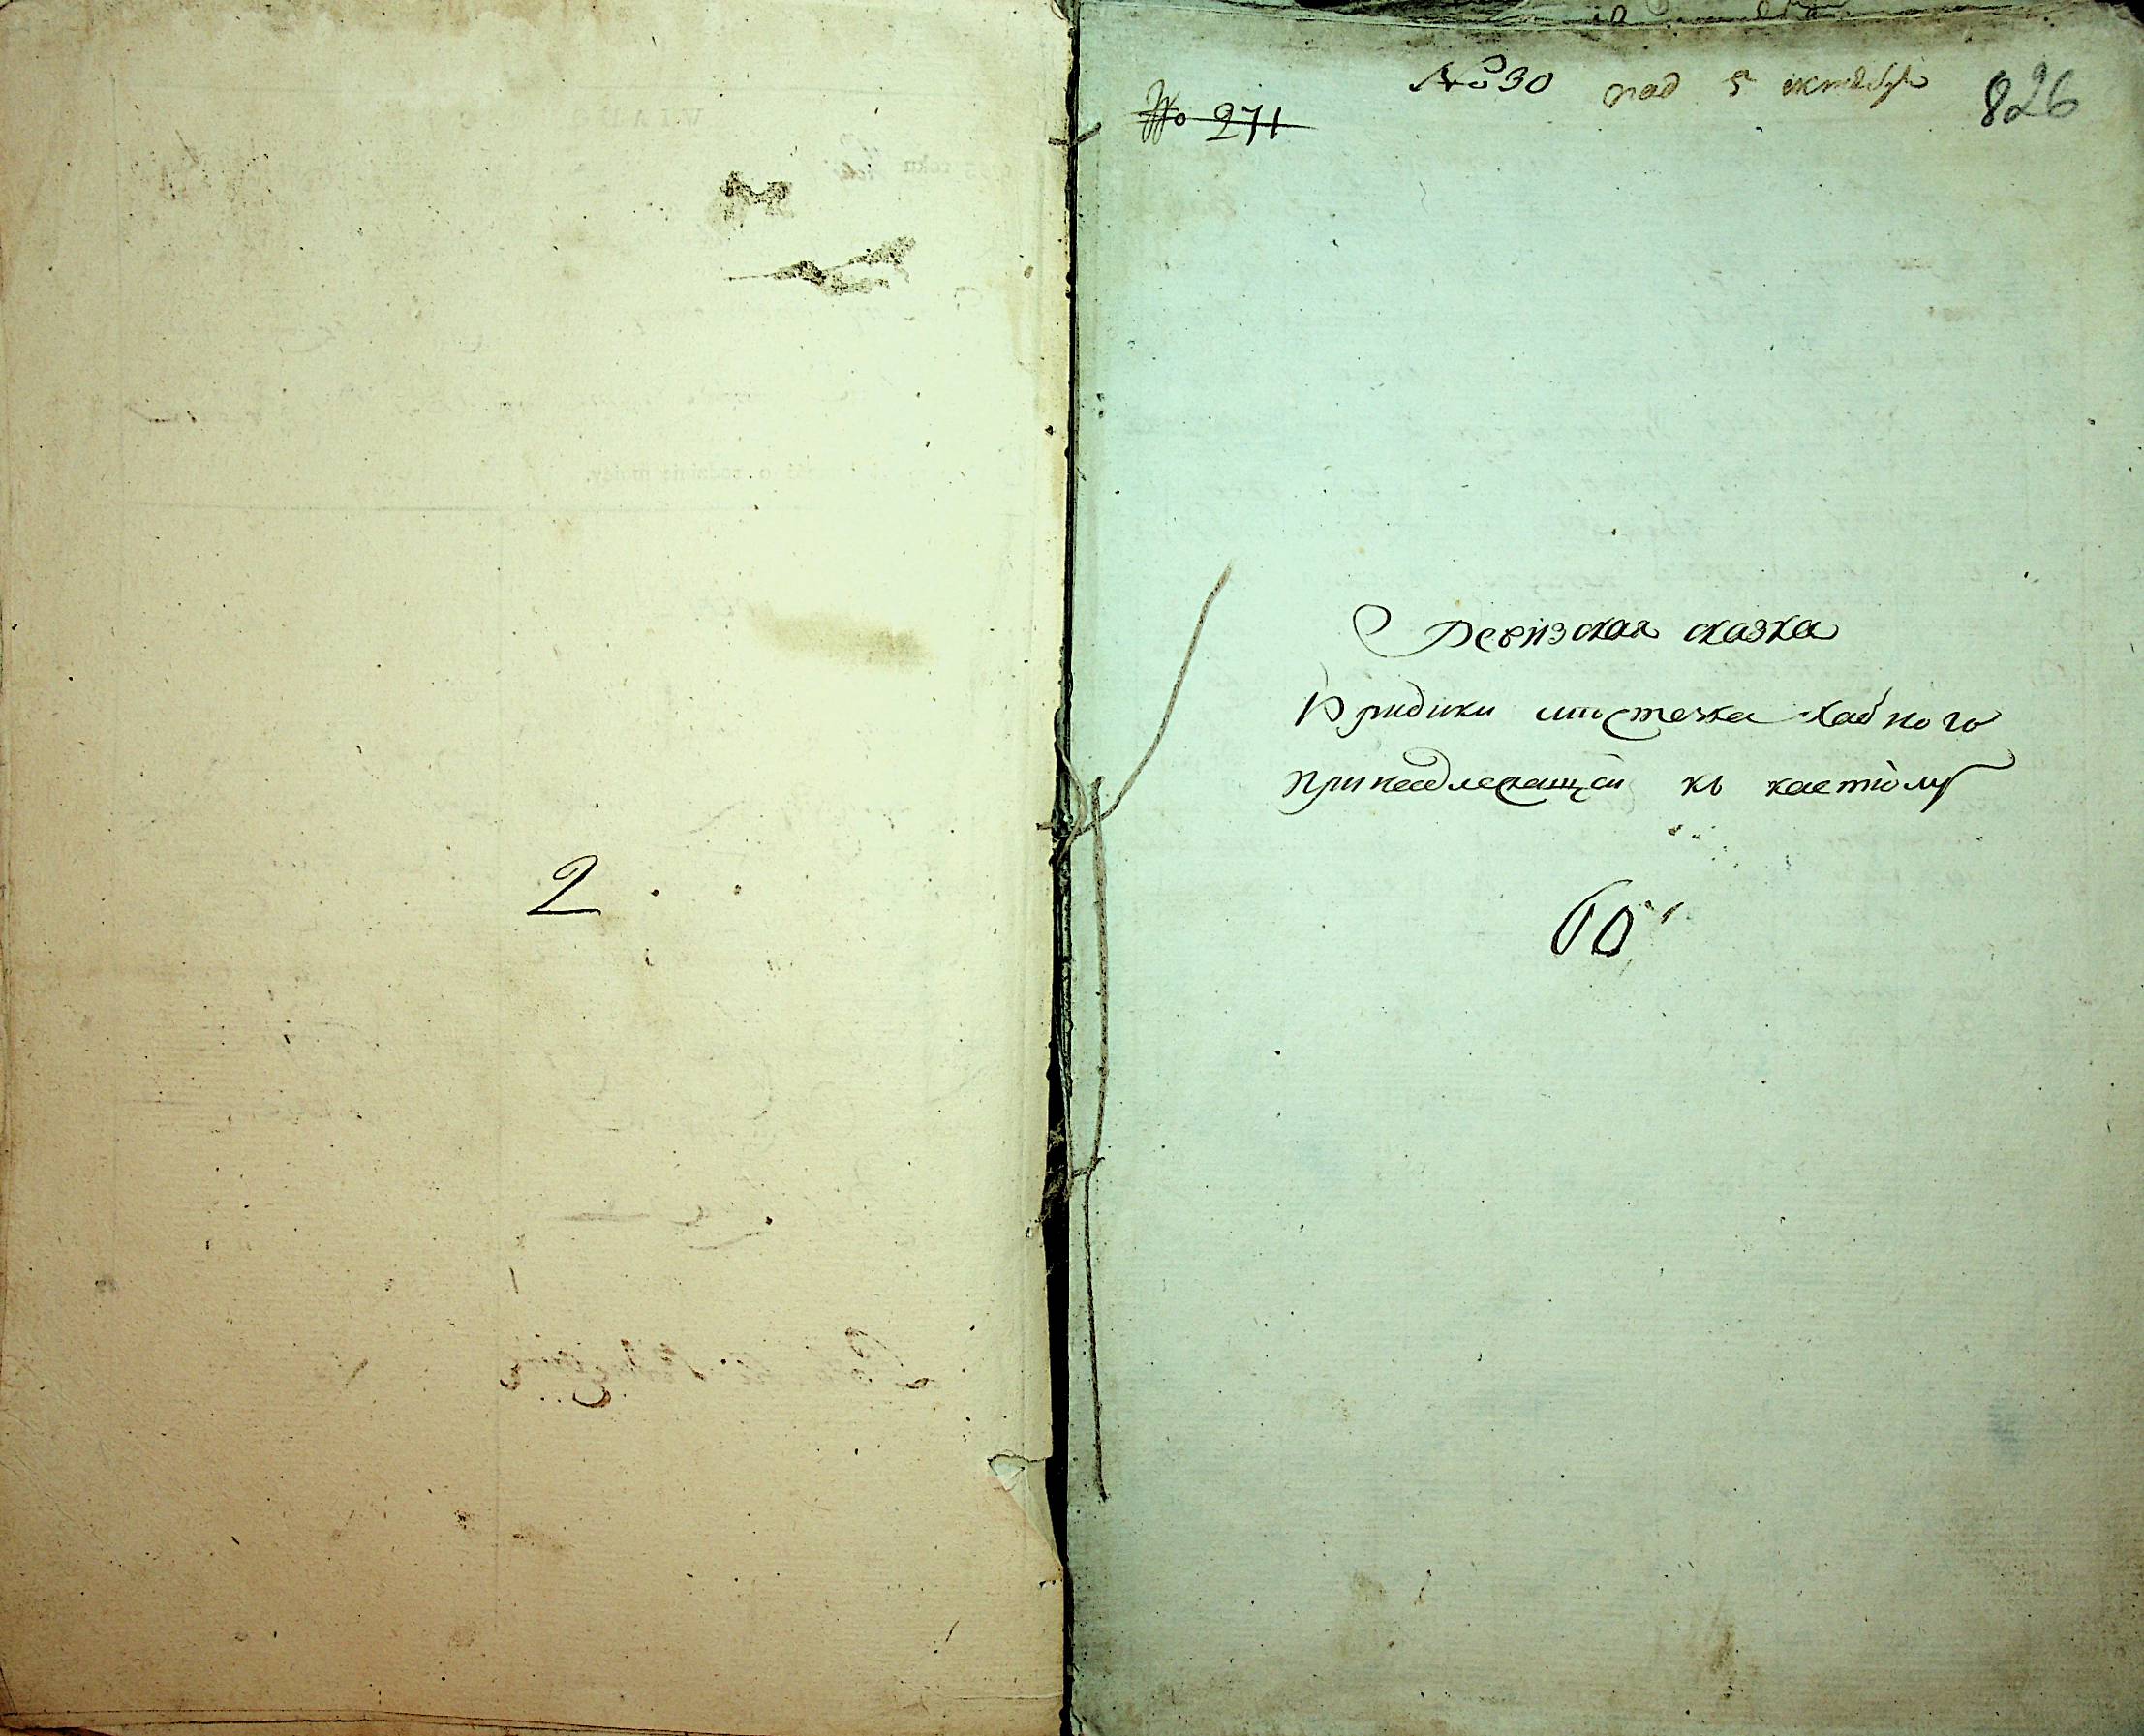 2
№ 30 под 5 октября
826
№ 271
Ревизская сказка
Юридики местечка Хабного
принадлежащей къ костіолу
60